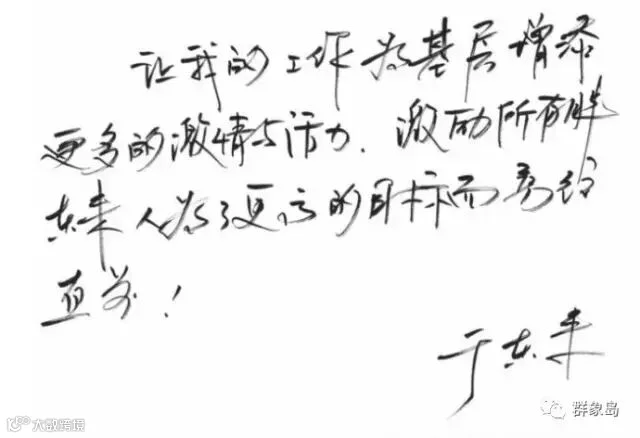 让我的工作为基层增添
更多的激情与活力、激励所有胖
东来人为了更高的目标而勇往
直前！
于东来
群象岛
大数跨境